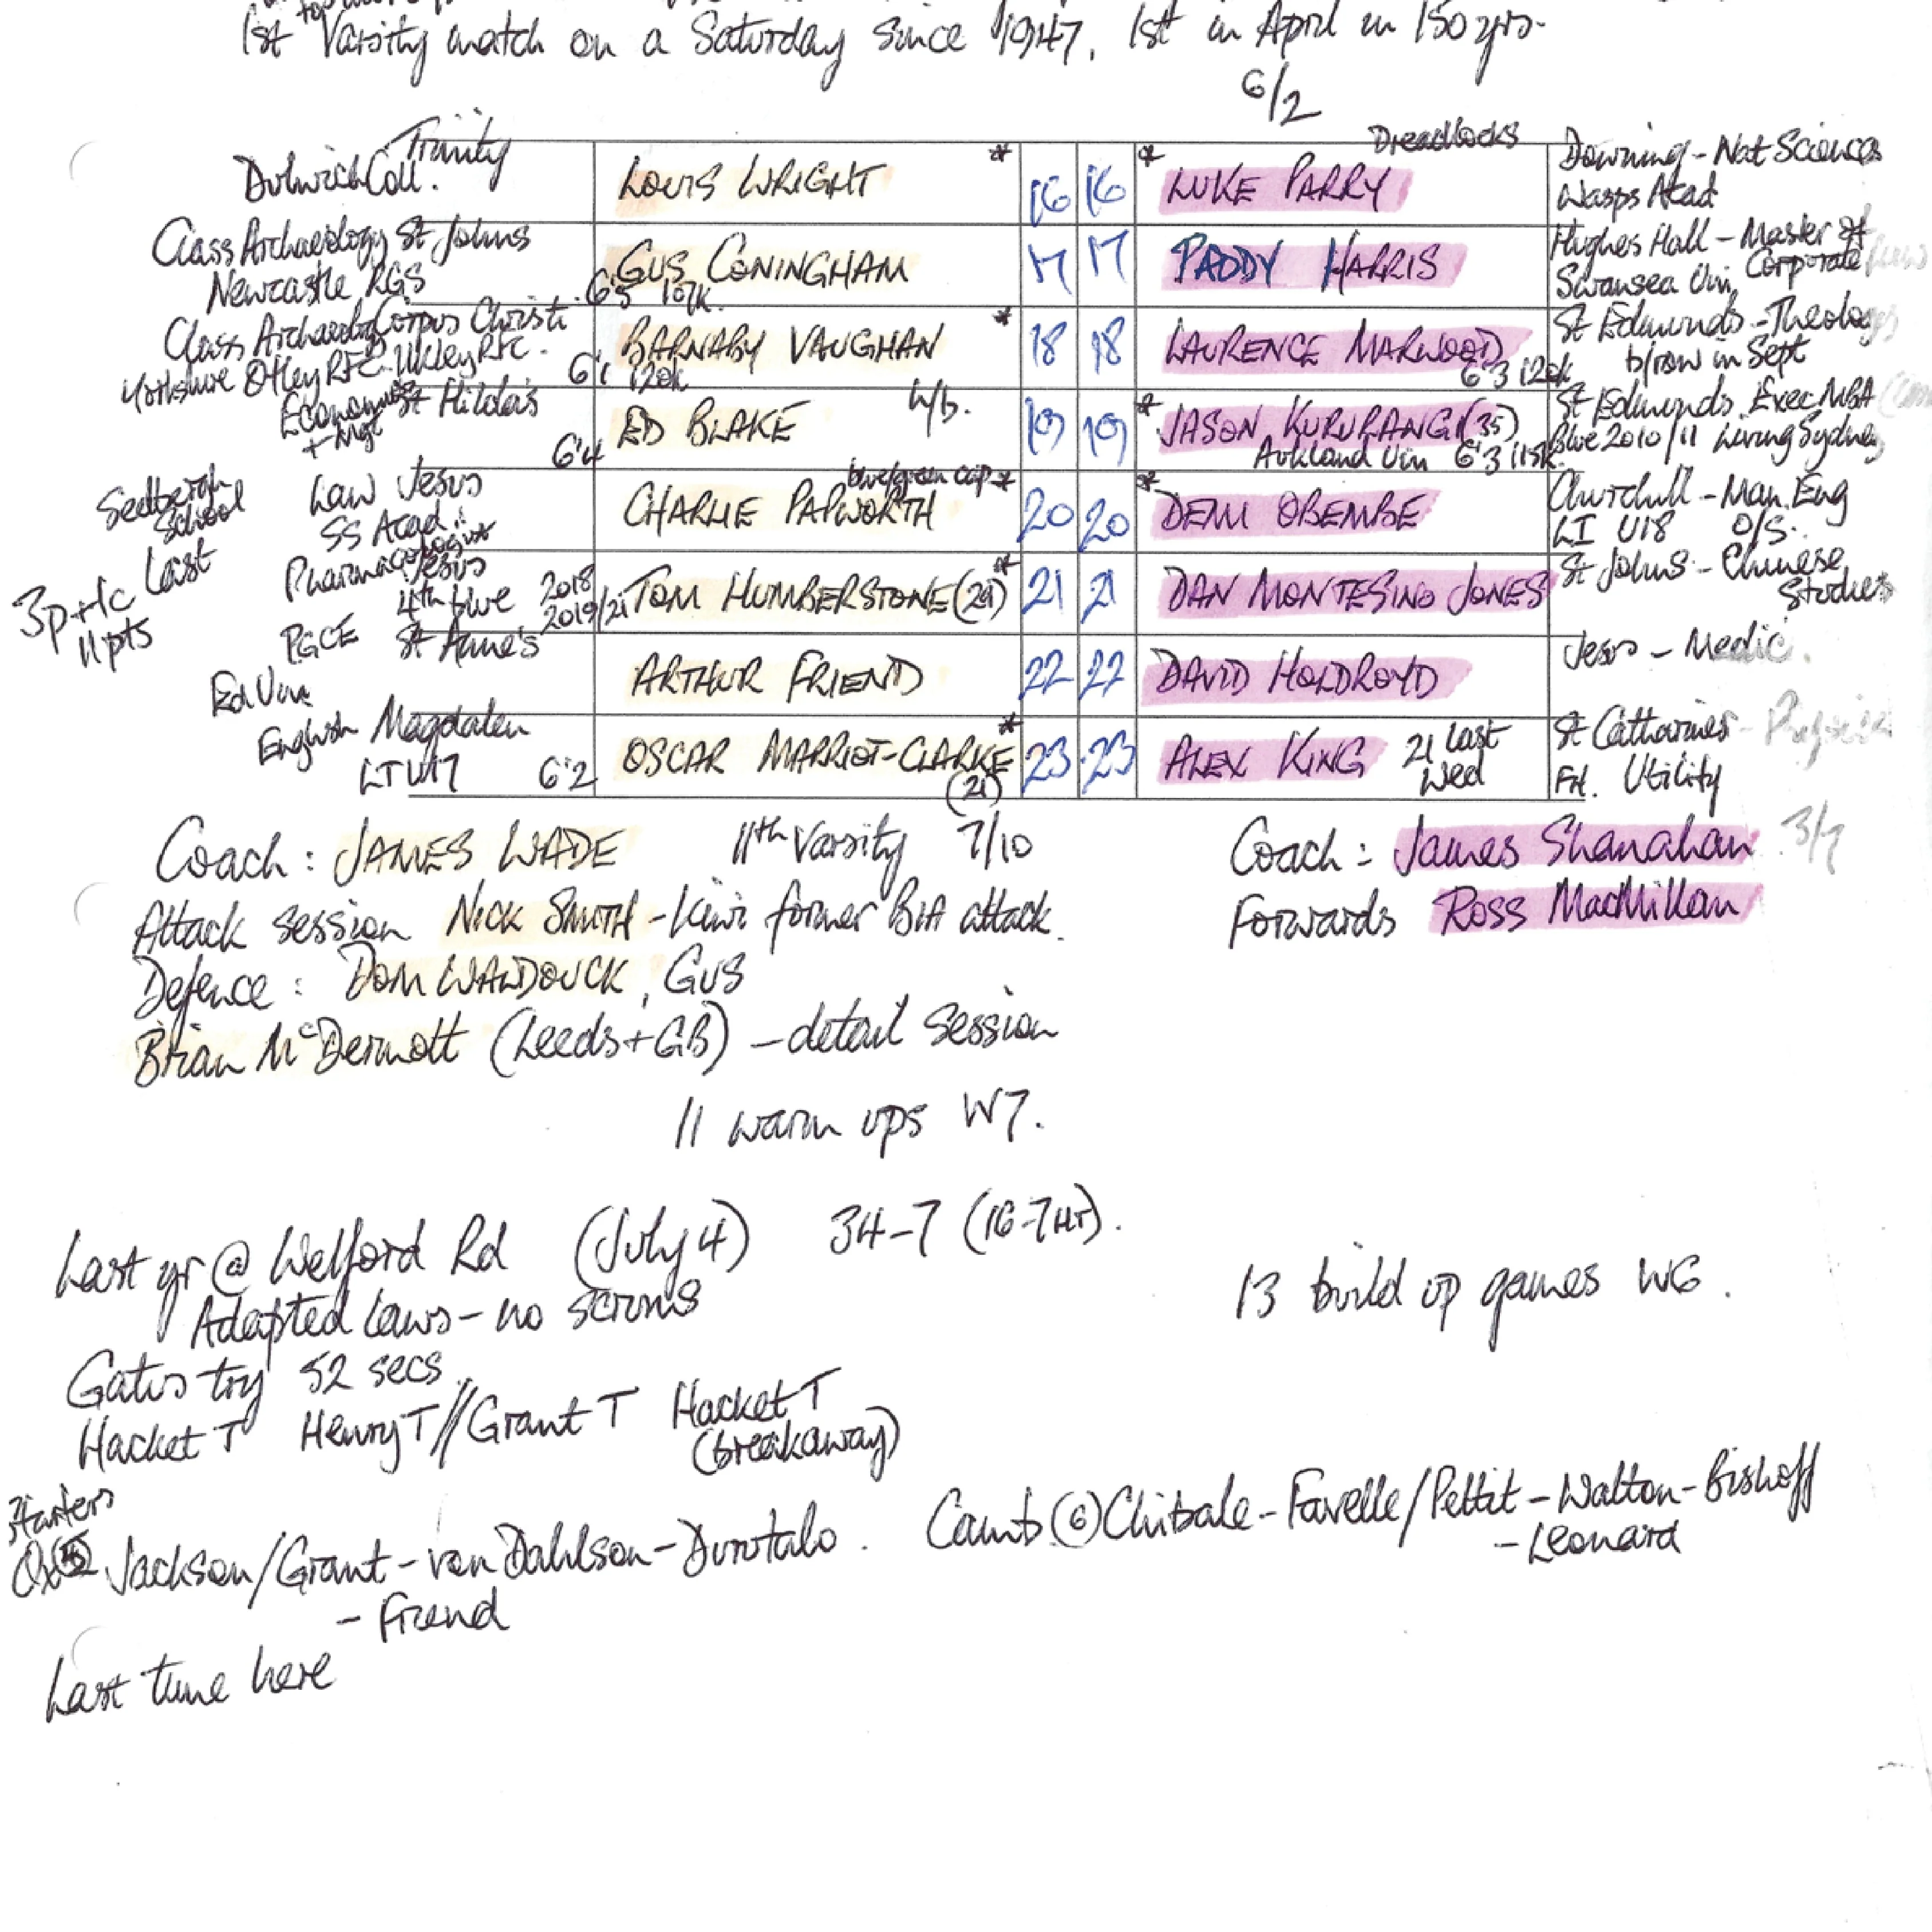 1st Varsity match on a Saturday since 1947, 1st in April in 150 yrs.
6/2
Trinity
Dulwich Coll.
LOUIS WRIGHT * 16 16 * LUKE PARRY Dreadlocks
Downing - Nat Sciences
Wasps Acad
Class Archaeology St Johns
Newcastle RGS
GUS CONINGHAM 17 17 PADDY HARRIS
6'5 107k.
Hughes Hall - Master of
Corporate Law
Swansea Uni
Class Archaeology Corpus Christi
Yorkshire Otley RFC. Ilkley RFC.
6'1 120k
BARNABY VAUGHAN * 18 18 LAURENCE MARWOOD
6'3 120k
St Edmunds - Theology
b/row in Sept
Economics St Hilda's
+ Mgt
6'4
ED BLAKE h/b. 19 19 * JASON KURURANGI (35)
Aukland Uni 6'3 115k
St Edmunds. Exec MBA
Blue 2010/11 Living Sydney
Sedbergh
School
Law Jesus
SS Acad
CHARLIE PAPWORTH blue/green cap * 20 20 * DEMI OBEMBE
Churchill - Man. Eng
LI U18 O/S.
3p+1c Last
11pts
Pharmacologist
Jesus
4th blue 2018
2019/21
TOM HUMBERSTONE (29) * 21 21 DAN MONTESINO JONES
St Johns - Chinese
Studies
PGCE St Anne's
Ed Uni
ARTHUR FRIEND 22 22 DAVID HOLDROYD
Jesus - Medic.
English Magdalen
LTU17 6'2
OSCAR MARRIOT-CLARKE * (21) 23 23 ALEX KING 21 Last
Wed
St Catharines -
FH. Utility
Coach : JAMES WADE 11th Varsity 7/10
Coach : James Shanahan 3/7
Attack session NICK SMITH - Kiwi former BIA attack.
Forwards Ross MacMillan
Defence : DOM WALDOUCK, GUS
Brian McDermott (Leeds + GB) - detail session
11 warm ups W7.
Last yr @ Welford Rd (July 4) 34-7 (16-7 HT).
Adapted laws - no scrums
13 build up games W6.
Gatus try 52 secs
Hacket T Henry T // Grant T Hacket T
(breakaway)
Starters
Ox Jackson/Grant - van Dahlson - Durutalo.
- Friend
Camb (6) Chibale - Favelle/Pettit - Walton - Bishoff
- Leonard
Last time here